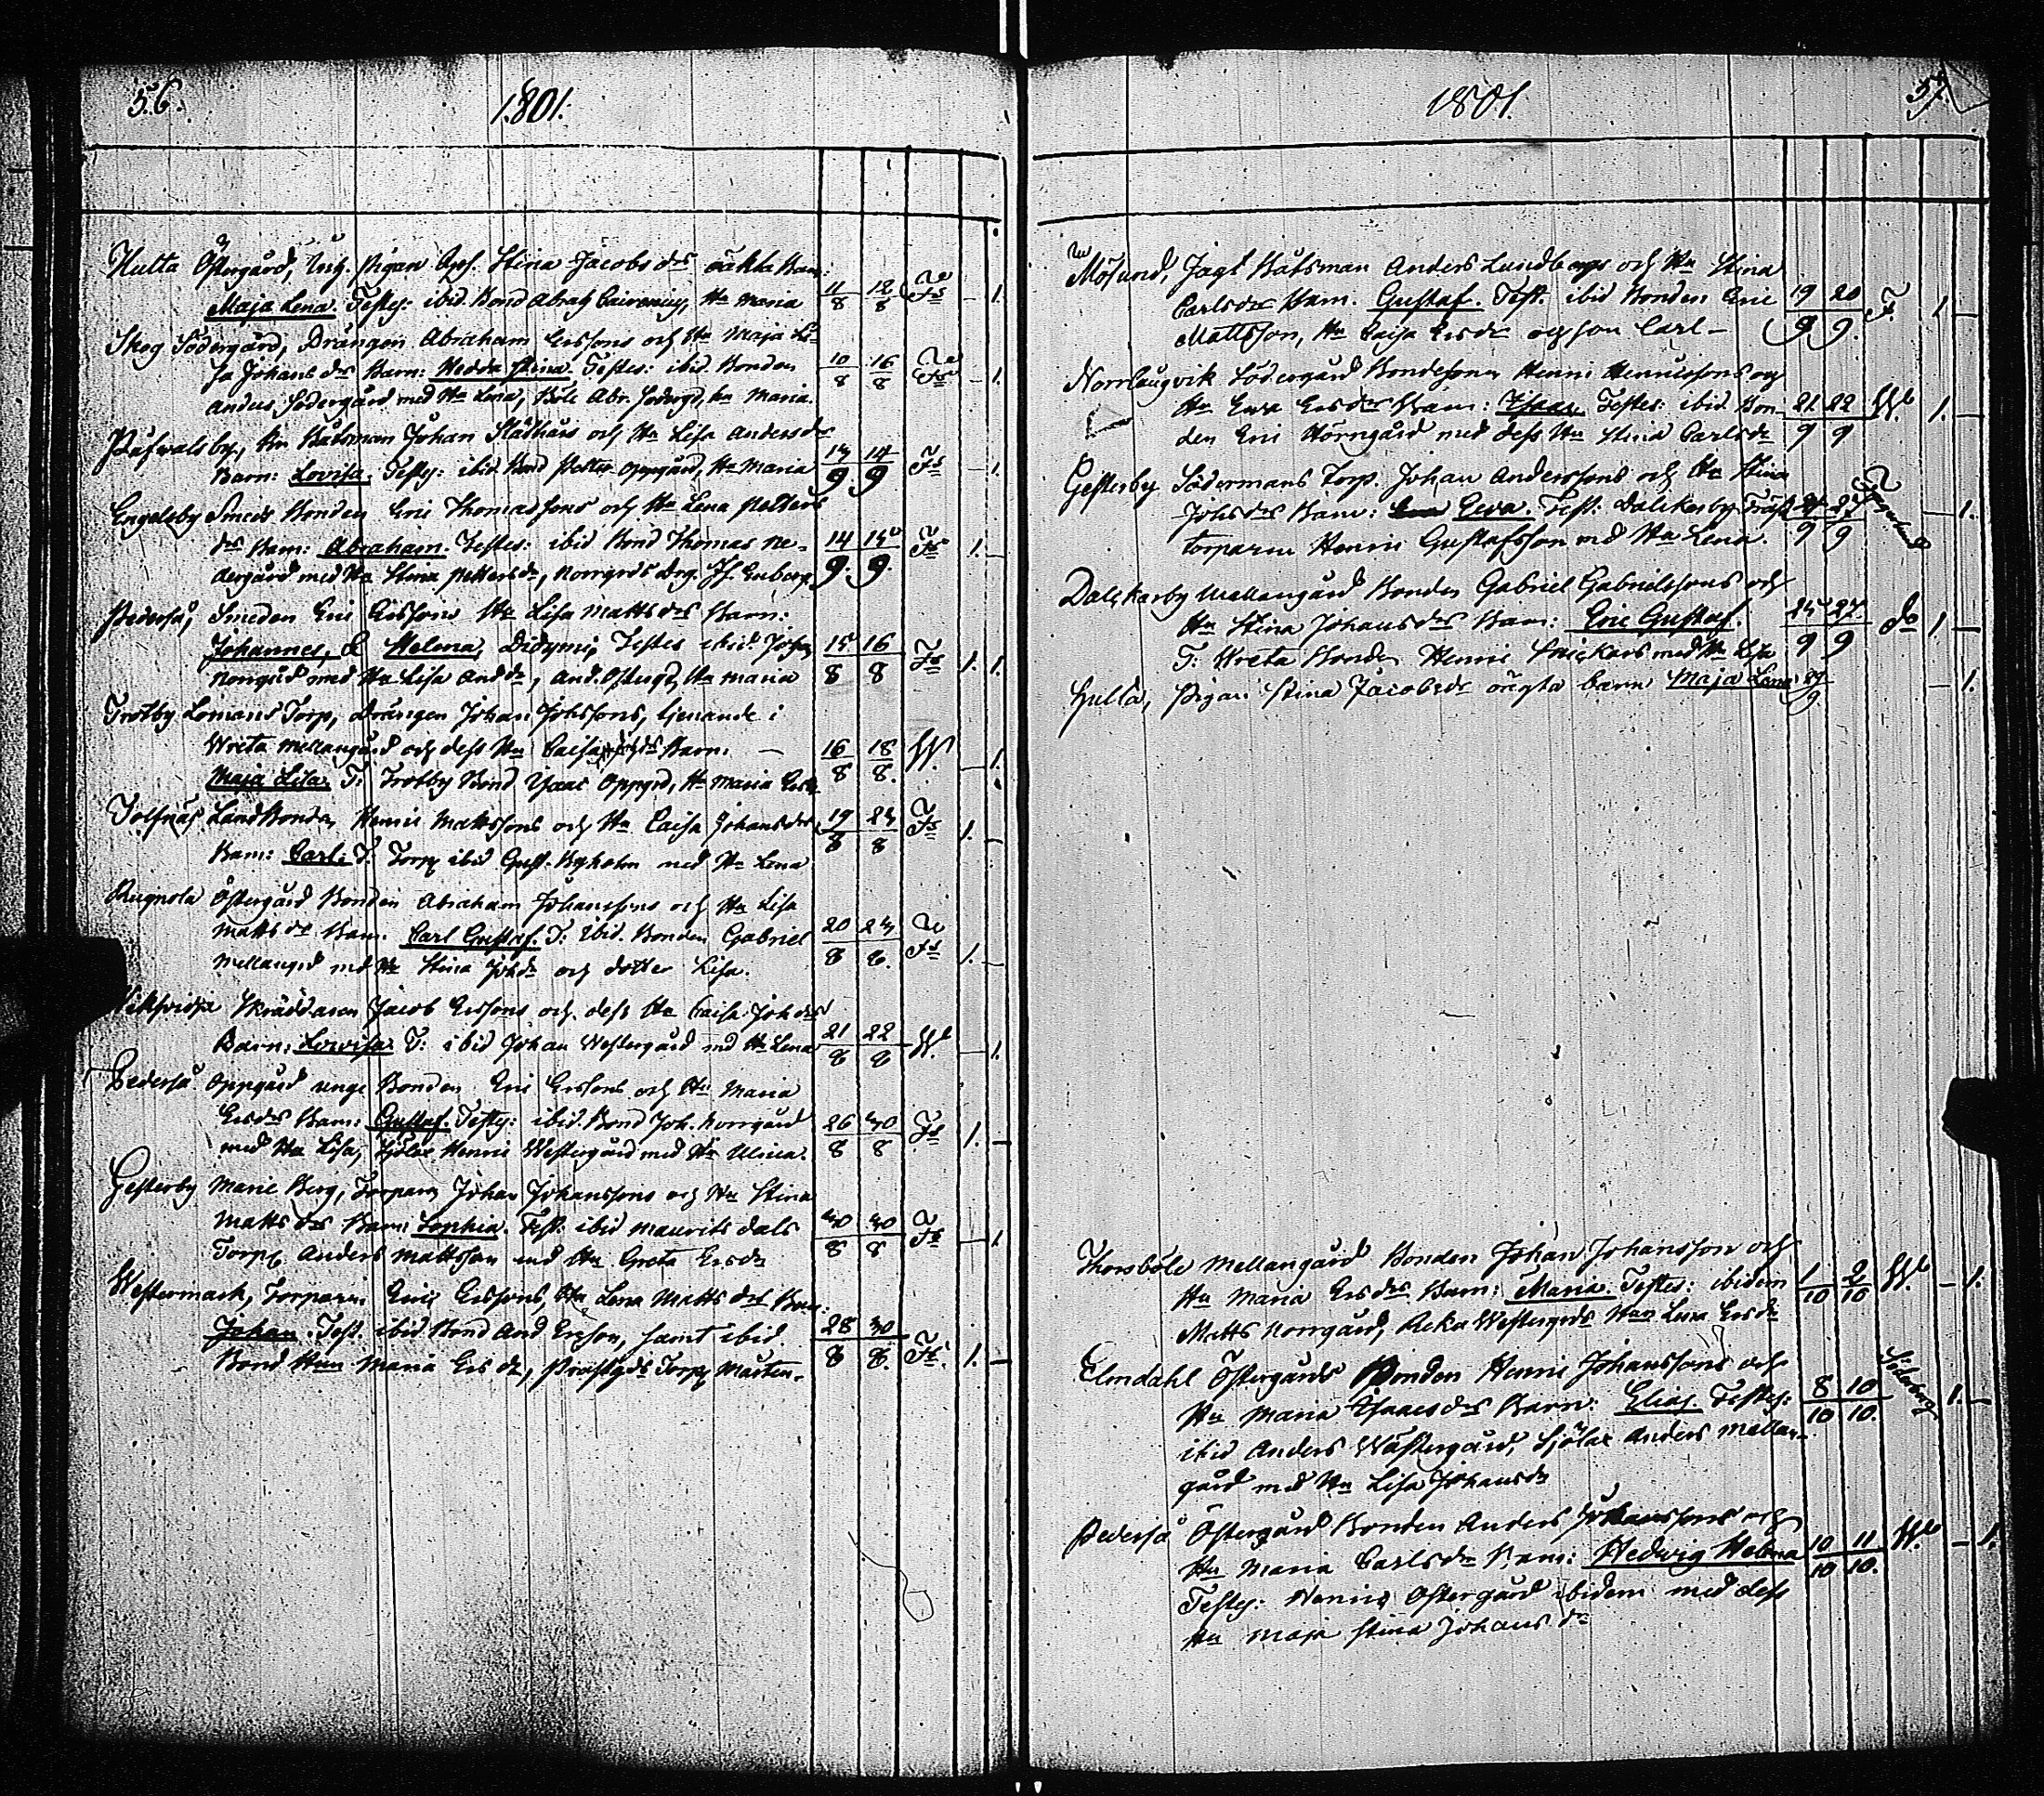 56.
1801.
Hulta Östergård, Inh. Pigan Stina Jacobsdr oäkta Barn:
Maja Lena. Testes: ibid. Bond Abrah Hu Maria 11/8 12/8 Fs – 1.
Skog Södergård, Drängen Abraham Erssons och Hu Maja Li-
sa Johansdr Barn: Hedda Stina. Testes: ibid. Bonden 10/8 16/8 – 1.
Anders Södergård med Hu Lena, Böle Abr. Södergd, hu Maria.
Båtsman Johan Hu Lisa Andersdr
Barn: Lovisa. Testes: ibid. Bond Petter Oppgård, Hu Maria 13/9 14/9 Fs – 1.
Engelsby Smeds Bonden Eric Thomassons och Hu Lena Petters
dr Barn: Abraham. Testes: ibid Bond Thomas Ne- 14/9 15/9 Fs 1. –
dergård med Hu Stina Pettersdr, Norrgrds Drg.
Pederså, Smeden Eric Erssons Hu Lisa Mattsdr Barn:
Johannes, & Helena, Didymi, Testes ibid. 15/8 16/8 Fs 1. 1.
Norrgård med Hu Lisa Anddr, And. Östergd, Hu Maria
Trotby Lomans Torp, Drängen Johan Johssons, tjenande i
Wreta Mellangård och dess Hu Caisa Barn: – 16/8 18/8 W. – 1.
Maja Lisa. T: Trotby Bond Isaac Oppgrd, Hu Maria Ersdr
Tolfnäs Landbonden Henric Mattssons och Hu Caisa Johansdr 19/8 23/8 Fs 1. –
Barn: Carl. T: Torp. ibid Gust. Byholm med Hu Lena
Rugnola Östergård Bonden Abraham Johanssons och Hu Lisa
Mattsdr Barn. Carl Gustaf. T: ibid. Bonden Gabriel 20/8 23/8 Fs 1. –
Mellangrd med Hu Stina Johdr och dotter Lisa.
Skräddaren Jacob Erssons och dess Hu Caisa Johdr
Barn: Lovisa T: ibid Johan Westergård med Hu Lena 21/8 22/8 W. – 1.
Pederså Oppgård unge Bonden Eric Erssons och Hu Maria
Ersdr Barn: Gustaf. Testes: ibid. Bond Joh. Norrgård 26/8 30/8 Fs 1. –
med Hu Lisa, Sjölax Henric Westergård med Hu Ulrica.
Gesterby Marie Berg, Torparen Johan Johanssons och Hu Stina
Mattsdr Barn: Sophia. Test: ibid Maurits dals 30/8 30/8 Fs – 1
Torp. Anders Mattsson med Hu Greta Ersdr
Westermark, Torparen Eric Erssons, Hu Lena Mattsdr Barn:
Johan. Test. ibid Bond And Ersson, samt ibid 28/8 30/8 Fs. 1. –
Bond Hun Maria Ersdr, Prästgds Torp. Mårten.
1801.
57.
Mösund, Jagt Båtsman Anders Lundbergs och Hu Stina
Carlsdr Barn. Gustaf. Test. ibid Bonden Eric 19/9 20/9 F. 1 –
Mattsson, Hu Caisa Ersdr och son Carl –
Norrlångvik Södergård Bondesonen Henric Henricssons och
Hu Ewa Ersdr Barn: Isaac. Testes: ibid. Bon- 21/9 22/9 W. 1. –
den Eric Hörngård med dess Hu Stina Carlsdr
Gesterby Södermans Torp. Johan Anderssons och Hu Stina
Johsdr Barn: Ewa. Test: Dalckarby Träsk – 1.
torparen Henric Gustafsson med Hu Lena.
Dalckarby Mellangård Bonden Gabriel Gabrielssons och
Hu Stina Johansdr Barn: Eric Gustaf. 25/9 27/9 do 1 –
T: Wreta Bonden Henric Snickars med Hu Lisa
Hulta, Pigan Stina Jacobsdr oägta barn Maja Lena 29/9 – 1.
Thorsböle Mellangård Bonden Johan Johansson och
Hu Maria Ersdr Barn: Maria. Testes: ibidem 1/10 2/10 W. – 1.
Matts Norrgård, Reka Westergrds Hun Lena Ersdr
Elmdahl Östergårds Bonden Henric Johanssons och
Hu Maria Isaacsdr Barn: Elias. Testes: 8/10 10/10. Söderberg 1. –
ibid Anders Wästergård, Sjölax Anders Mellan-
gård med Hu Lisa Johansdr
Pederså Östergård Bonden Anders Johanssons och
Hu Maria Carlsdr Barn: Hedwig Helena 10/10 11/10. W. – 1.
Testes: Henric Östergård ibidem med dess
Hu Maja Stina Johansdr